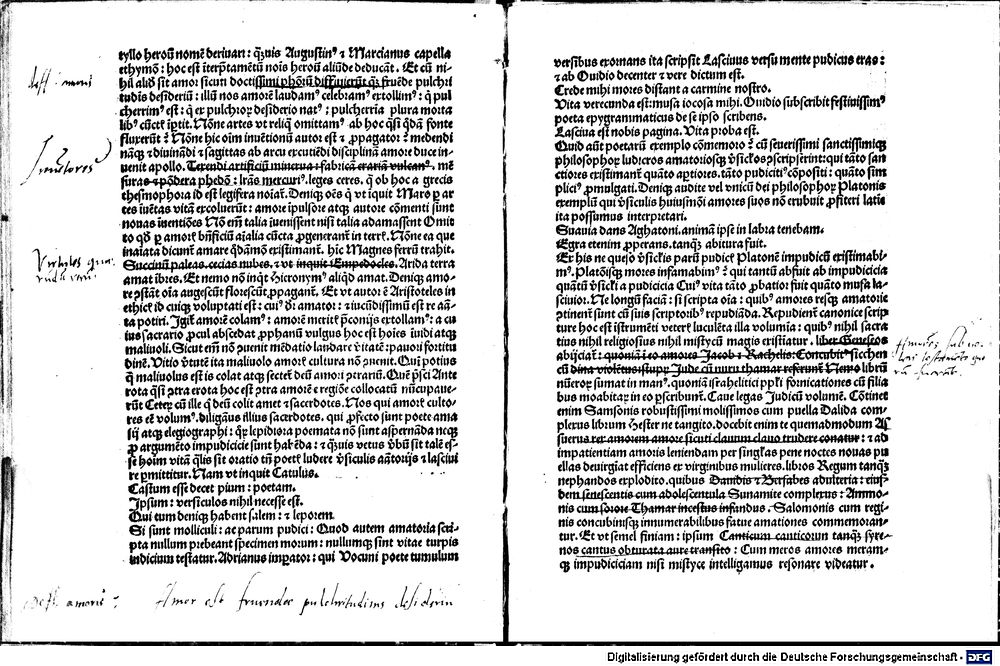 tyllo heroũ nomẽ deriuari : q̃uis Augustinꝰ ⁊ Marcianus capella
ethymõ : hoc est ĩterp̃tamẽtũ noĩs heroũ aliũde deducãt . Et cũ ni-
hil aliđ sit amor sicuti doctissimi phõrũ diffinierũt q̃ fruẽde pulchri
tudis desideriũ : illũ nos amorẽ laudamꝰ celebramꝰ extollimꝰ : q̃ pul
cherrimꝰ est : q̃ ex pulchrioꝝ desiderio natꝰ : pulcherria plura nostra
Nõne artes vt reliq̃ omittamꝰ ab hoc q̃si q̃dã fonte
fluxerũt ? Nõne hic oĩm inuẽtionũ autor est ⁊ ꝓpagator ? medendi
nãq̃ ⁊ diuinãdi ⁊ sagittas ab arcu excutiẽdi disciplinã amore duce in-
uenit apollo . Texendi artificiũ minerua : fabricã erariã vulcanꝰ . mẽ
furas ⁊ põdera phedõ : lr̃as mercuriꝰ . leges ceres . q̃ ob hoc a grecis
thesmophora id est legifera noĩat̃ . Deniq̃ oẽs q̃ vt iquit Mars ꝑ ar
tes iuẽtas vitã excoluerũt : amore ĩpulsore atq̃ autore cõmenti sunt
nouas ĩuentiões Nõ em̃ talia iuenissent nisi talia adamassent Omit
to qđ ꝑ amorẽ bñficiũ aĩalia cũcta ꝓgenerant̃ in terrẽ . Nõne ea que
inaĩata dicunt̃ amare q̃dãmo existimant̃ . hic Magnes ferrũ trahit .
Succinũ paleas . cecias nubes . ⁊ vt inquit Empedocles . Arida terra
amat ĩbres . Et nemo nõ inq̃t Hieronymꝰ aliqđ amat . Deniq̃ amo-
re ꝯstãt oĩa augescũt florescũt ꝓpagant̃ . Et vt autor ẽ Aristoteles in
ethicẽ id cuiq̃ voluptati est : cuiꝰ dr̃ amator : ⁊ iucũdissimũ est re aã-
ta potiri . Igit̃ amorẽ colamꝰ : amorẽ meritẽ p̃conijs extollamꝰ : a cu
ius sacrario ꝓcul abscedat ꝓphanũ vulgus hoc est hoĩes iuidi atq̃
maliuoli . Sicut em̃ nõ ꝯuenit mẽdatio laudare vĩtatẽ : pauoi fortitu
dinẽ . Vitio ṽtutẽ ita maliuolo amorẽ cultura nõ ꝯuenit . Qui potius
q̃ maliuolus est is colat atq̃ sectet̃ deũ amori ꝯtrariũ . Quẽ p̃sci Ante
rota q̃si ꝯtra erota hoc est ꝯtra amorẽ e regiõe collocatũ nũcupaue-
rũt Ceteꝝ cũ ille q̃ deũ colit amet ⁊ sacerdotes . Nos qui amorẽ culto-
res eẽ volumꝰ . diligãus illius sacerdotes . qui ꝓfecto sunt poete ama
tij atq̃ elegiographi : q̃ꝛ lepidiora poemata nõ sunt aspernãda neq̃
ꝓ argumẽto impudicicie sunt habẽda : ⁊ q̃uis vetus ṽbũ sit talẽ es-
se hoĩm vitã q̃lis sit oratio tñ poet̃ ludere ṽsiculis aãtorijs ⁊ lasciui
re ꝑmittitur . Nam vt inquit Catulus .
Castum esse decet pium : poetam .
Ipsum : versiculos nihil necesse est .
Qui tum deniq̃ habent salem : ⁊ leporem
Si sunt molliculi : ac parum pudici : Quod autem amatoria scri-
pta nullum prebeant specimen morum : nullumq̃ sint vitae turpis
indicium testatur . Adrianus imꝑator : qui Vocuni poete tumulum
diff. amoris
Inuẽtores
diff. amoris : Amor est fruendae pulchritudinis desiderium
versibus exornans ita scripsit Lasciuus versu mente pudicus eras :
⁊ ab Ouidio decenter ⁊ vere dictum est .
Crede mihi mores distant a carmine nostro .
Vita verecunda est : musa iocosa mihi . Ouidio subscribit festiuissimꝰ
poeta epygrammaticus de se ipso scribens .
Lasciua est nobis pagina . Vita proba est .
Quid aũt poetarũ exemplo cõmemoro ? cũ seuerissimi sanctissimiq̃
philosophoꝝ ludicros amatoriosq̃ ṽsiclos ꝓscripserint : qui tãto san
ctiores existimant̃ quãto aptiores . tãto pudicitiꝰ cõpositi : quãto sim
pliciꝰ ꝓmulgati . Deniq̃ audite vel vnicũ dei philosophoꝝ Platonis
exemplũ qui ṽsiculis huiusmõi amores suos nõ erubuit ꝓfiteri latie
ita possumus interpretari .
Suauia dans Aghatoni . animã ipse in labra tenebam .
Egra etenim ꝓperans . tanq̃ abitura fuit .
Ex his ne queso ṽsiclis parũ pudicẽ Platonẽ impudicũ existimabi-
mꝰ . Platõisq̃ mores infamabimꝰ ? qui tantũ abfuit ab impudicicia
quãtũ ṽsicli a pudicicia Cuiꝰ vita tãto ꝓbatior fuit quãto musa la-
sciuior . Ne longũ faciã : si scripta oĩa : quibꝰ amores resq̃ amatorie
ꝯtinent̃ sunt cũ suis scriptoribꝰ repudiãda . Repudient̃ canonice scrip
ture hoc est istrumẽti veterẽ luculẽta illa volumĩa : quibꝰ nihil sacra
tius nihil religiosius nihil mistycũ magis existiatur . liber Geneseos
abijciat̃ : quoniã ĩ eo amores Jacob ⁊ Rachelis : Concubitꝰ sicchen
cũ dina violẽtus istupꝝ Jude cũ nuru thamar referunt̃ Nemo librũ
nũeroꝝ sumat in manꝰ . quoniã israhelitici ppli fornicationes cũ filia
bus moabitaꝝ in eo ꝓscribunt̃ . Caue legas Judicũ volumẽ . Cõtinet
enim Samsonis robustissimi molissimos cum puella Dalida com-
plexus librum Hester ne tangito . docebit enim te quenadmodum As
suerus rex amorem amore sicuti clauum clauo trudere conatur : ⁊ ad
impatientiam amoris leniendam per singl̃as pene noctes nouas pu
ellas deuirgiat efficiens ex virginibus mulieres . libros Regum tanq̃
nephandos explodito . quibus Dauidis ⁊ Bersabes adulteria : eius-
dem senescentis cum adolescentula Sunamite complexus : Ammo-
nis cum sorore Thamar incestus infandus . Salomonis cum regi-
nis concubinisq̃ innumerabilibus fatue amationes commemoran-
tur . Et vt semel finiam : ipsum Canticum canticorum tanq̃ syre-
nos cantus obturata aure transito : Cum meros amores meram-
q̃ impudiciciam nisi mistyce intelligamus resonare videatur .
Digitalisierung gefördert durch die Deutsche Forschungsgemeinschaft - DFG